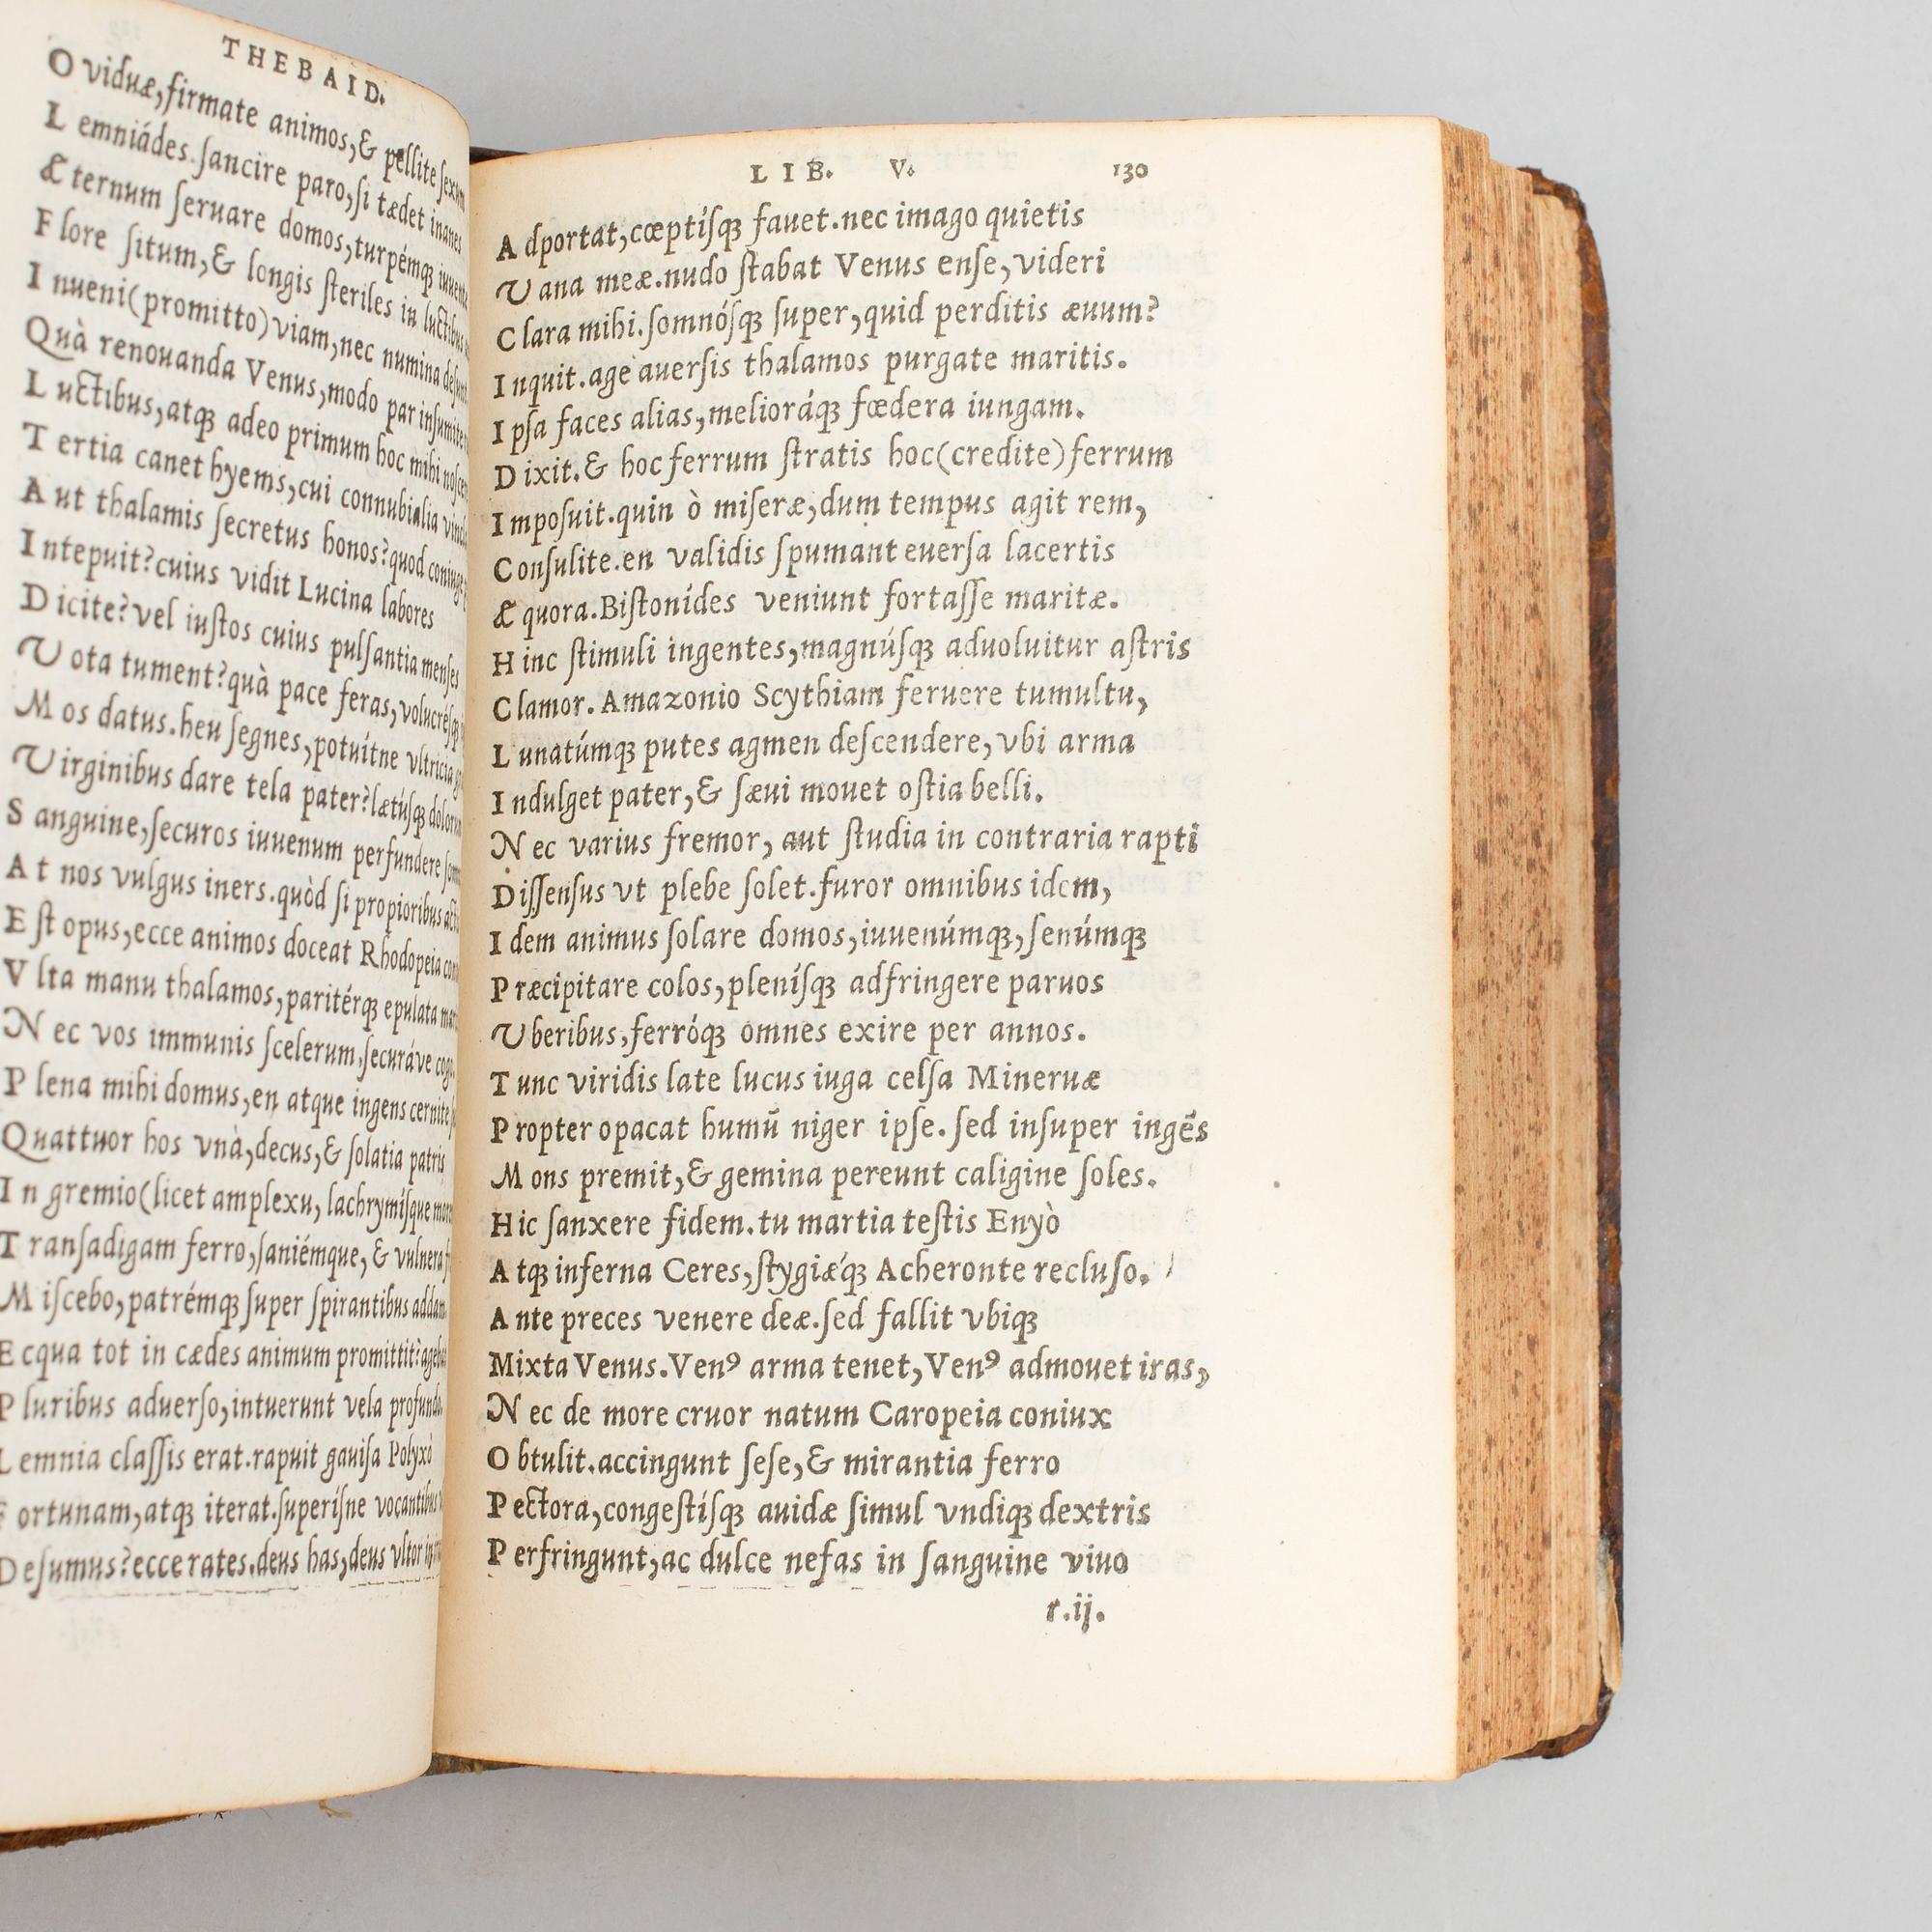 THEBAID.
O viduæ,firmate animos,& pellite sexum
L emniádes.sancire paro,si tædet inanes
Æ ternum seruare domos,turpémq́;
F lore situm,& longis steriles in luctibus
I nueni(promitto)viam,nec numina
Quà renouanda Venus,modo par insumite
L uctibus,atq; adeo primum hoc mihi
T ertia canet hyems,cui connubialia
A ut thalamis secretus honos?quod
I ntepuit?cuius vidit Lucina labores
D icite?vel iustos cuius pulsantia menses
V ota tument?quà pace feras,
M os datus.heu segnes,potuítne vltricia
V irginibus dare tela pater?lætúsq;
S anguine,securos iuuenum perfundere
A t nos vulgus iners.quòd si propioribus
E st opus,ecce animos doceat Rhodopeia
V lta manu thalamos,paritérq; epulata
N ec vos immunis scelerum,securáve
P lena mihi domus,en atque ingens cernite
Quattuor hos vnà,decus,& solatia patris
I n gremio(licet amplexu, lachrymísque
T ransadigam ferro,saniémque, & vulnera
M iscebo,patrémq; super spirantibus
E cqua tot in cædes animum promittit?
P luribus aduerso,intuerunt vela
L emnia classis erat.rapuit gauisa Polyxò
F ortunam,atq; iterat.superísne vocantibus
Desumus?ecce rates.deus has,deus vltor
LIB. V. 130
A dportat,cœptísq; fauet.nec imago quietis
V ana meæ.nudo stabat Venus ense,videri
C lara mihi.somnósq; super,quid perditis æuum?
I nquit.age auersis thalamos purgate maritis.
I psa faces alias,melioráq; fœdera iungam.
D ixit.& hoc ferrum stratis hoc(credite)ferrum
I mposuit.quin ò miseræ,dum tempus agit rem,
C onsulite.en validis spumant euersa lacertis
Æ quora.Bistonídes veniunt fortasse maritæ.
H inc stimuli ingentes,magnúsq; aduoluitur astris
C lamor. Amazonio Scythiam feruere tumultu,
L unatúmq; putes agmen descendere,vbi arma
I ndulget pater,& sæui mouet ostia belli.
N ec varius fremor, aut studia in contraria rapti
D issensus vt plebe solet.furor omnibus idem,
I dem animus solare domos,iuuenúmq;,senúmq;
P ræcipitare colos,plenísq; adfringere paruos
V beribus,ferróq; omnes exire per annos.
T unc viridis late lucus iuga celsa Mineruæ
P ropter opacat humū niger ipse.sed insuper ingēs
M ons premit,& gemina pereunt caligine soles.
H ic sanxere fidem.tu martia testis Enyò
A tq; inferna Ceres,stygiǽq; Acheronte recluso.
A nte preces venere deæ.sed fallit vbiq;
Mixta Venus.Venꝰ arma tenet,Venꝰ admouet iras,
N ec de more cruor natum Caropeia coniux
O btulit.accingunt sese,& mirantia ferro
P ectora,congestísq; auidæ simul vndiq; dextris
P erfringunt,ac dulce nefas in sanguine viuo
r.ij.